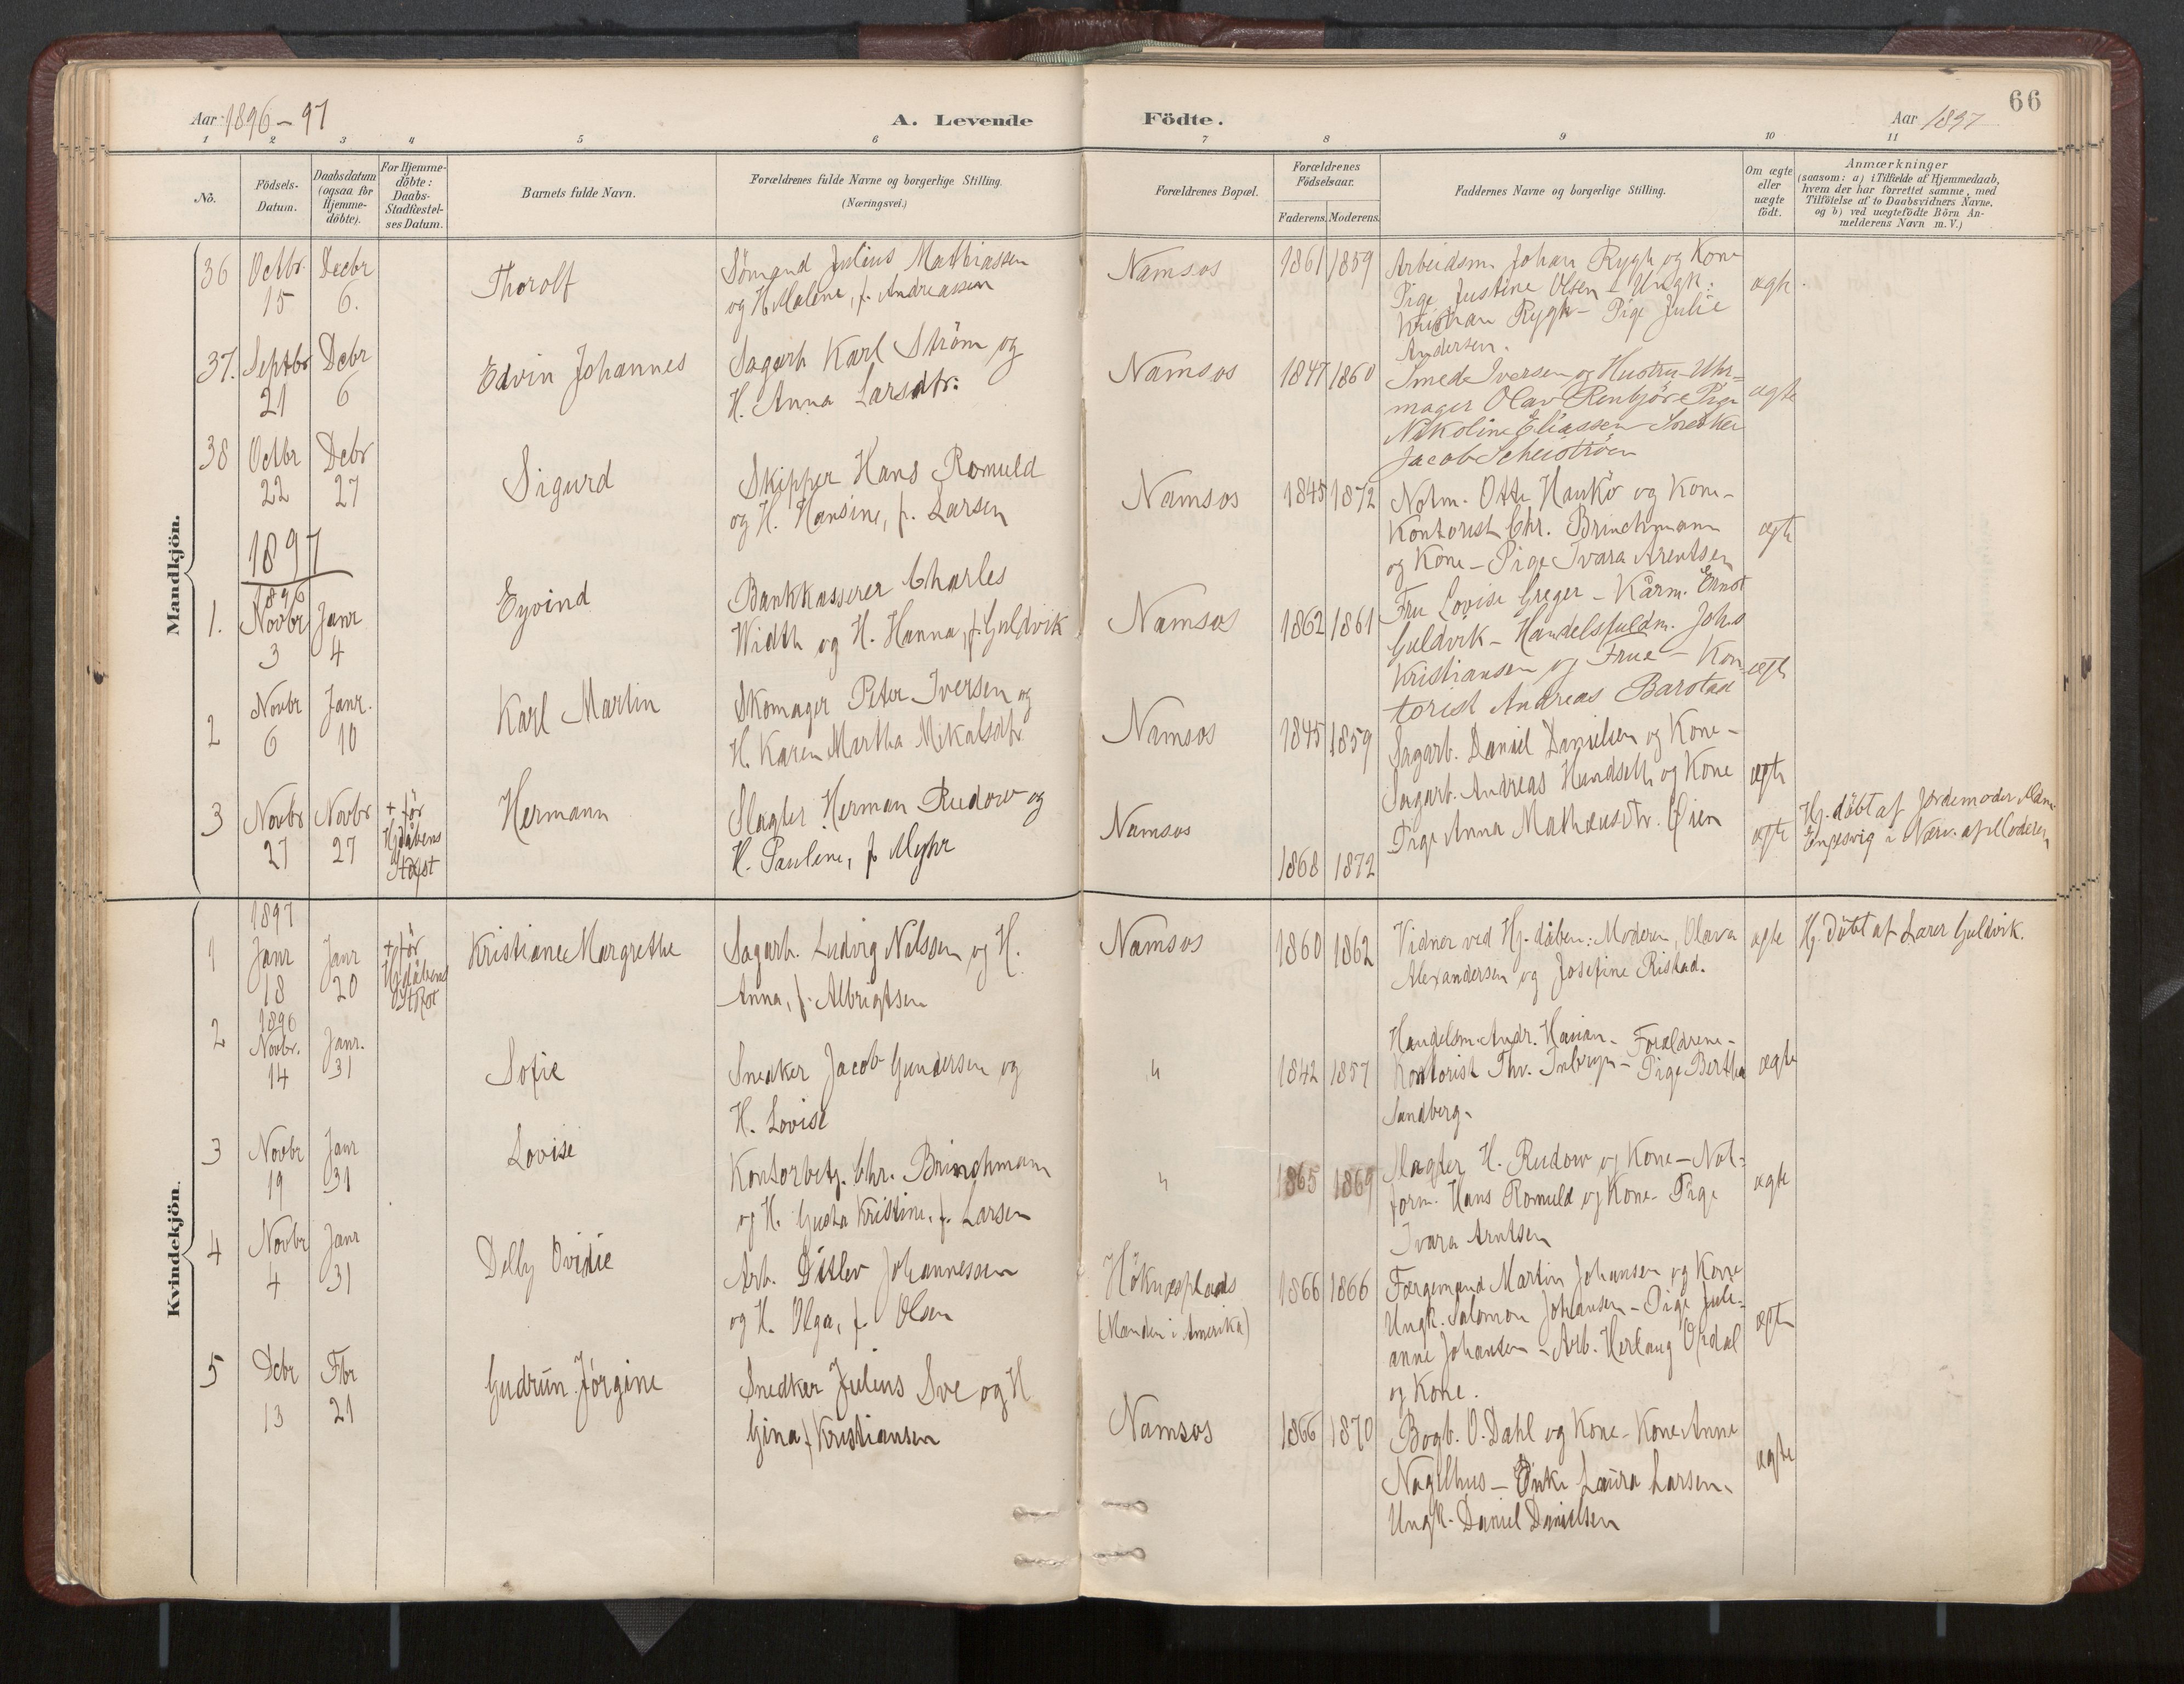 Aar 1896-97
A. Levende
Födte.
Aar 1897
66
1 2 3 4 5 6 7 8 9 10 11
No.
Födsels-Datum.
Daabsdatum (ogsaa for Hjemme-döbte).
For Hjemme-döbte: Daabs-Stadfæstel-ses Datum.
Barnets fulde Navn.
Forældrenes fulde Navne og borgerlige Stilling.
(Næringsvei.)
Forældrenes Bopæl.
Forældrenes Födselsaar.
Faderens. Moderens.
Faddernes Navne og borgerlige Stilling.
Om ægte eller uægte födt.
Anmærkninger
(saasom: a) i Tilfælde af Hjemmedaab,
hvem der har forrettet samme, med
Tilföielse af to Daabsvidners Navne,
og b) ved uægtefödte Börn An-
melderens Navn m. V.)
Mandkjön.
36 Octbr. 15 Decbr 6.
Thorolf
Sömand Julius Mathiassen
og H. Malene, f. Andreassen
Namsos
1861 1859
Arbeidsm. Johan Rygh og Kone
Pige Justine Olsen - Ungk:
Kristian Rygh - Pige Julie
Andersen.
ægte.
37. Septbr 21 Debr 6
Edvin Johannes
Sagarb Karl Ström og
H. Anna Larsdtr.
Namsos
1847 1860
Smed Iversen og Hustru - Uhr=
mager Olav Renbjör - Pige
Nikoline Eliassen - Snedker
Jacob
ægte
38 Octbr 22 Debr 27
Sigurd
Skipper Hans Romuld
og H. Hansine, f. Larsen
Namsos
1845 1872
Notm. Otto Haukö og Kone -
Kontorist Chr. Brinchmann
og Kone - Pige Ivara Arentsen
ægte
1897
1. 1896 Novbr 3 Janr 4
Eyvind
Bankkasserer Charles
Width og H. Hanna, f. Guldvik
Namsos
1862 1861
Fru Lovise Greger - Kårm. Ernst
Guldvik - Handelsfuldm. Johs
Kristiansen og Frue - Kon-
torist Andreas Barstad
ægte
2 Novbr 6 Janr. 10
Karl Martin
Skomager Peter Iversen og
H. Karen Martha Mikalsdtr
Namsos
1845 1859
Sagarb. Daniel Danielsen og Kone -
Sagarb. Andreas Hundseth og Kone
Pige Anna Mathæusdtr. Öien
ægte
3 Novbr 27 Novbr 27
+ før Hjdåbens Stafst
Hermann
Slagter Herman Rudow og
H. Pauline, f Myhr
Namsos
1868 1872
ægte
Hj. døbt af Jordemoder
Engesvig i Nærv. af Moderen
Kvindekjön.
1 1897 Janr 18 Janr 20
+ før Hjdåbens
Kristiane Margrethe
Sagarb. Ludvig Nelssen og H.
Anna, f. Albrigtsen
Namsos
1860 1862
Vidner ved Hj. dåben: Moderen, Olava
Alexandersen og Josefine Ristad.
ægte
Hj. døbt af Lærer Guldvik.
2 1896 Novbr. 14 Janr. 31
Sofie
Snedker Jacob Gundersen og
H. Lovise
"
1842 1857
Handelsm. Andr. Havian - Forældrene -
Kontorist Thv. - Pige Bertha
Sandberg.
ægte
3 Novbr 19 Janr 31
Lovise
Kontorbetj. Chr. Brinchmann
og H. Gusta Kristine, f. Larsen
"
1865 1869
Slagter H. Rudow og Kone - Not=
form. Hans Romuld og Kone - Pige
Ivara Arntsen
ægte
4 Novbr 4 Janr 31
Delly Ovidie
Arb. Ditlev Johannessen
og H. Olga, f. Olsen
Höknesplads
(Manden i Amerika)
1866 1866
Færgemand Martin Johansen og Kone
Ungk. Salomon Johansen - Pige Juli=
anne Johansen - Arb. Herlaug Opdal
og Kone.
ægte
5 Debr 13 Fbr 21
Gudrun Jörgine
Snedker Julius Sve og H
Gina f Kristiansen
Namsos
1866 1870
Bogb. O. Dahl og Kone - Kone Anne
Nagelhus - Enke Laura Larsen.
Ungk. Daniel Danielsen
ægte